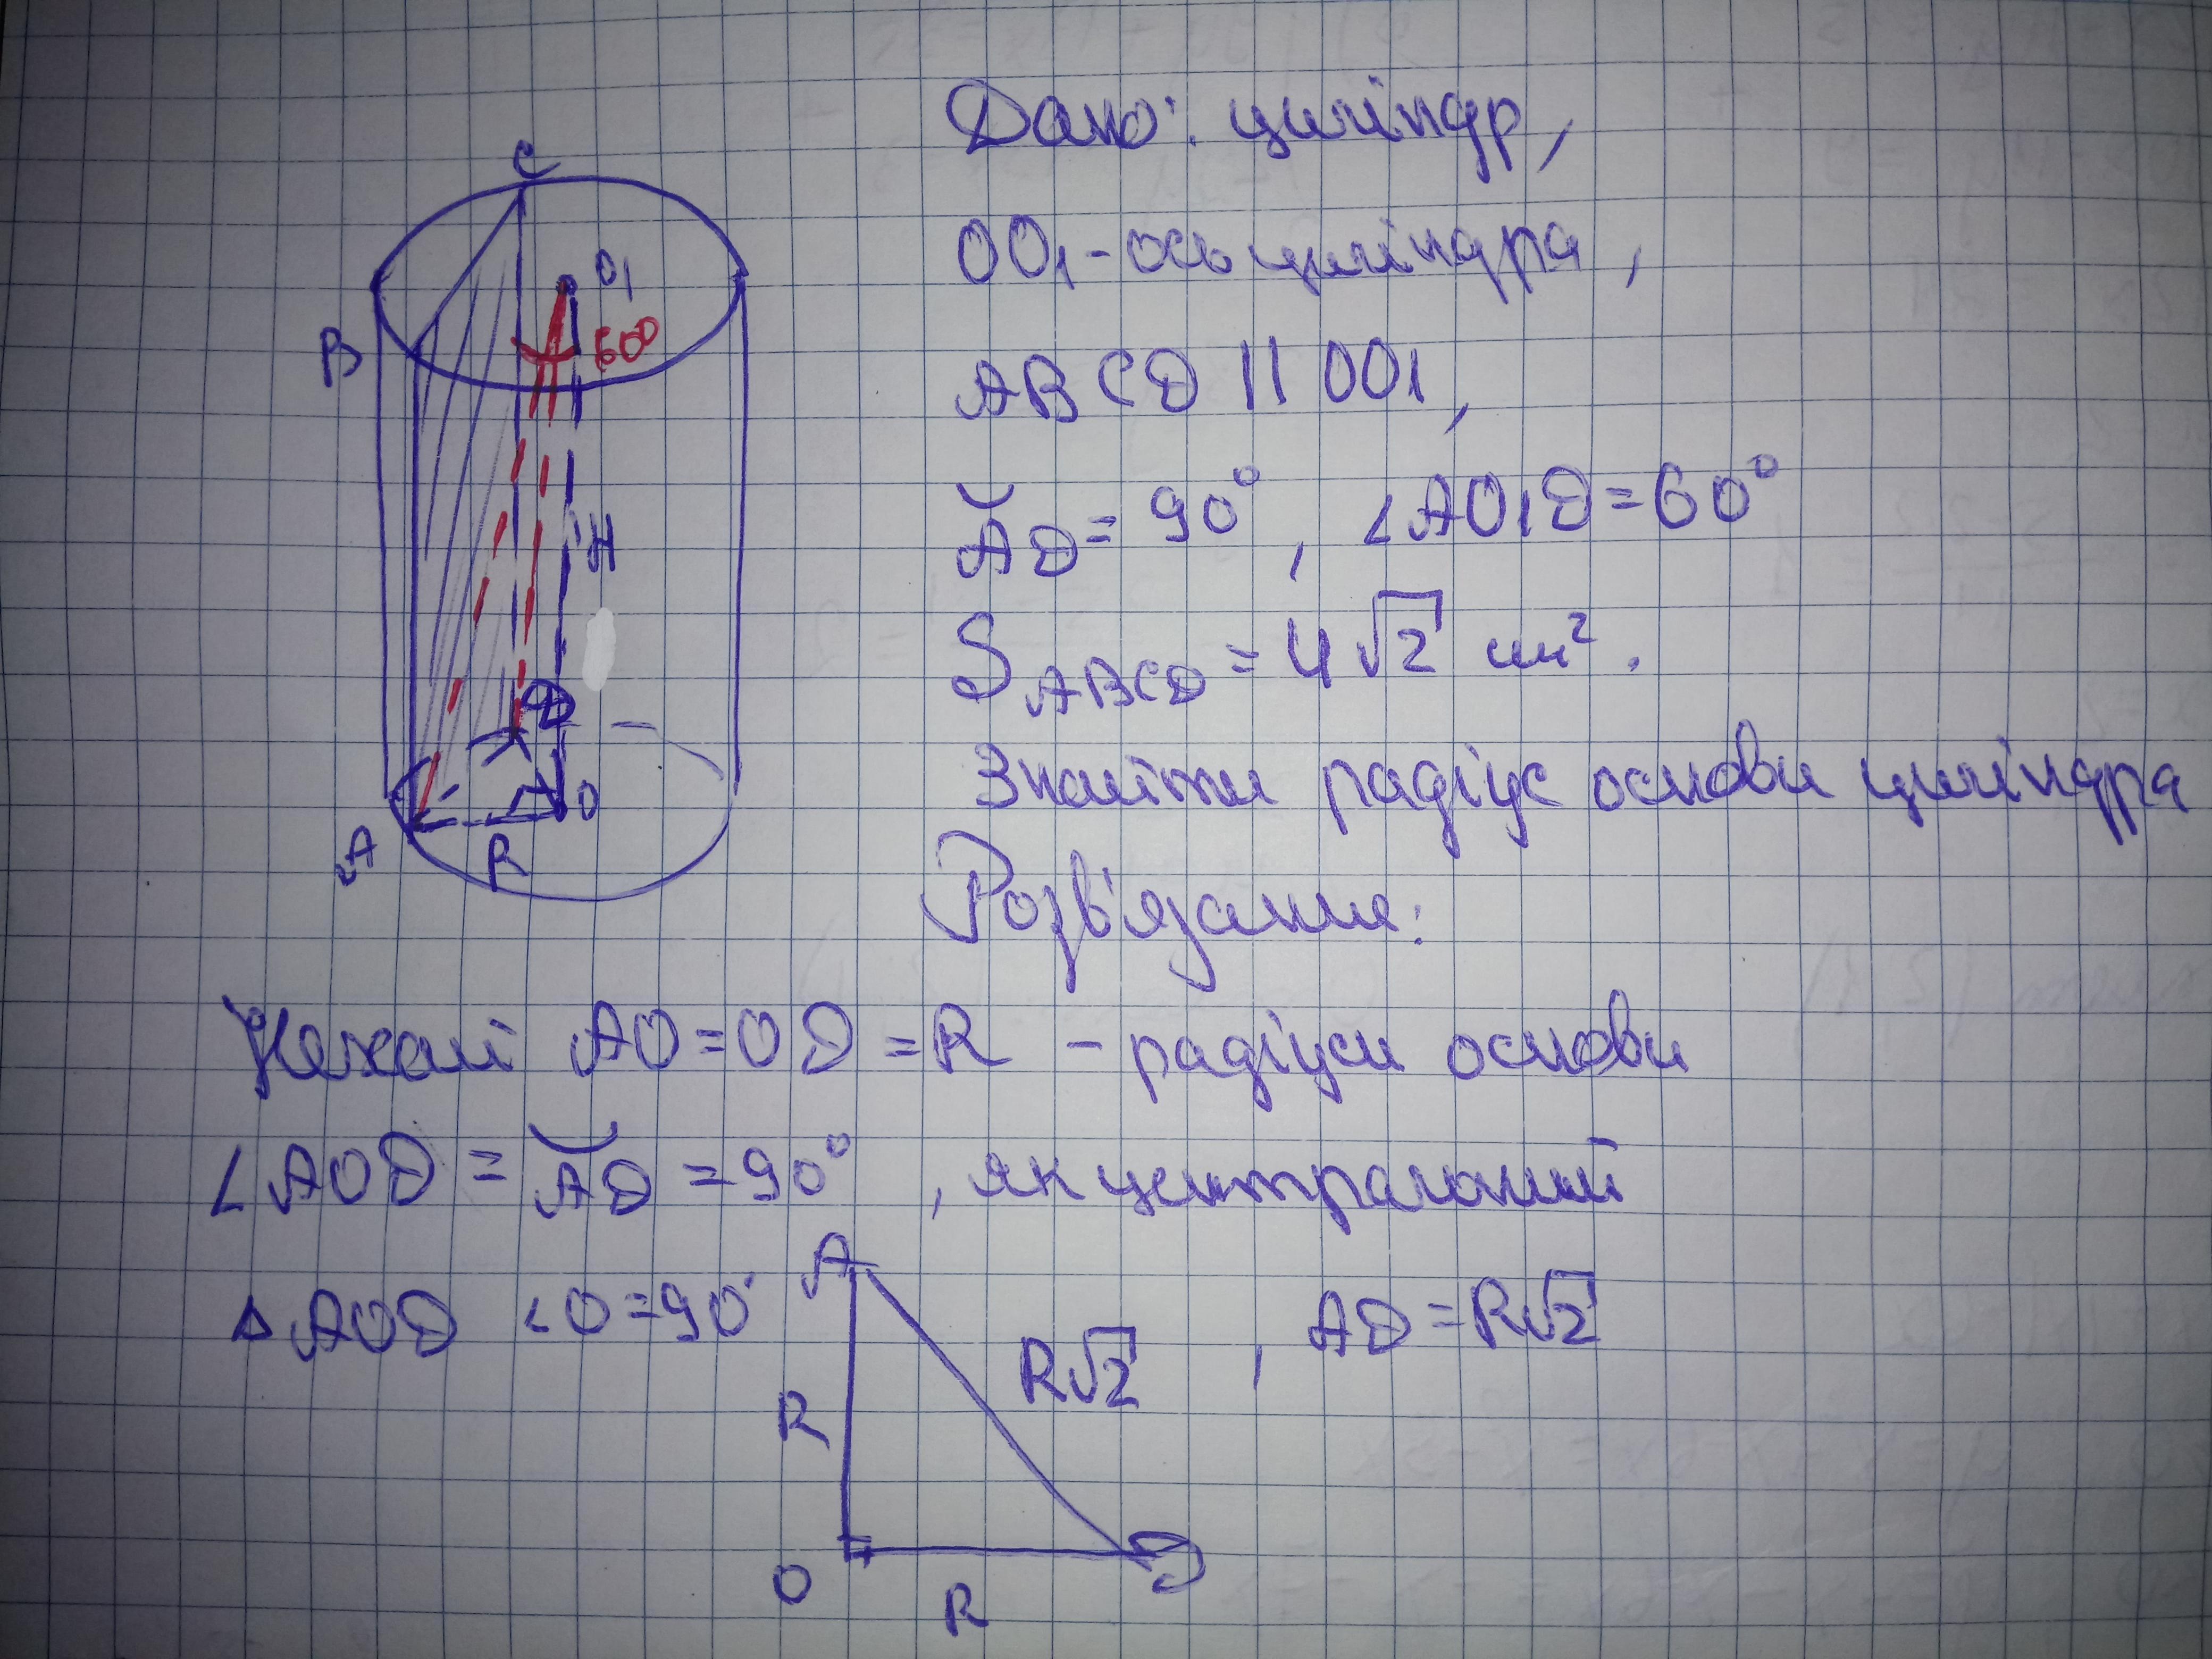 Дано: циліндр,
OO₁ - ось циліндра,
ABCD || OO₁,
◡AD = 90°, ∠AO₁D = 60°
S ABCD = 4√2 см².
Знайти радіус основи циліндра
Розв'язання:
C
O₁
B
60°
H
D
O
A
R
Нехай AO = OD = R - радіуси основи
∠AOD = ◡AD = 90°, як центральний
△ AOD ∠O = 90°, AD = R√2
A
R√2
R
O
D
R